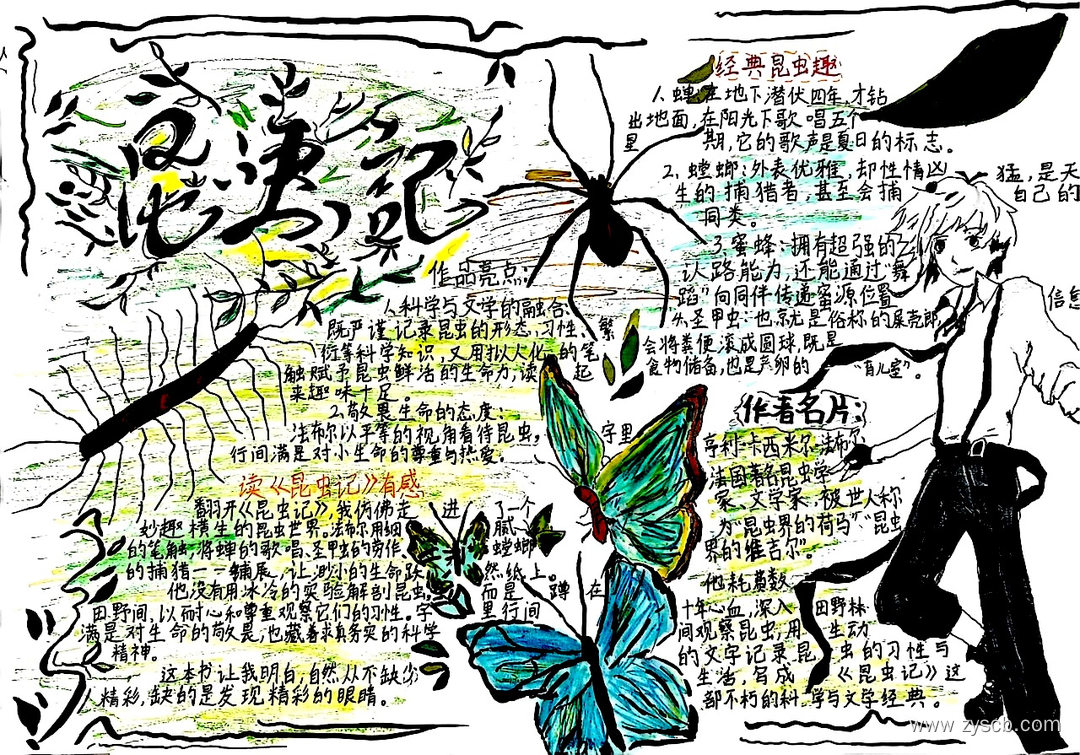 昆虫记
作品亮点:
1.科学与文学的融合:
既严谨记录昆虫的形态、习性、繁
衍等科学知识,又用拟人化的笔
触赋予昆虫鲜活的生命力,读起
来趣味十足。
2.敬畏生命的态度:
法布尔以平等的视角看待昆虫,字里
行间满是对小生命的尊重与热爱。
读《昆虫记》有感
翻开《昆虫记》,我仿佛走进了一个
妙趣横生的昆虫世界。法布尔用细腻
的笔触,将蝉的歌唱、圣甲虫的劳作、螳螂
的捕猎一一铺展,让渺小的生命跃然纸上。
他没有用冰冷的实验解剖昆虫,而是蹲在
田野间,以耐心和尊重观察它们的习性。字里行间
满是对生命的敬畏,也藏着求真务实的科学
精神。
这本书让我明白,自然从不缺少
精彩,缺的是发现精彩的眼睛。
经典昆虫趣
1.蝉:在地下潜伏四年,才钻
出地面,在阳光下歌唱五个
星期,它的歌声是夏日的标志。
2.螳螂:外表优雅,却性情凶猛,是天
生的捕猎者,甚至会捕自己的
同类。
3.蜜蜂:拥有超强的
认路能力,还能通过“舞
蹈”向同伴传递蜜源位置信息
4.圣甲虫:也就是俗称的屎壳郎,
会将粪便滚成圆球,既是
食物储备,也是产卵的“育儿室”。
作者名片:
亨利·卡西米尔·法布尔
法国著名昆虫学
家、文学家,被世人称
为“昆虫界的荷马”“昆虫
界的维吉尔”。
他耗费数
十年心血,深入田野林
间观察昆虫,用生动
的文字记录昆虫的习性与
生活,写成《昆虫记》这
部不朽的科学与文学经典。
www.zyscb.com